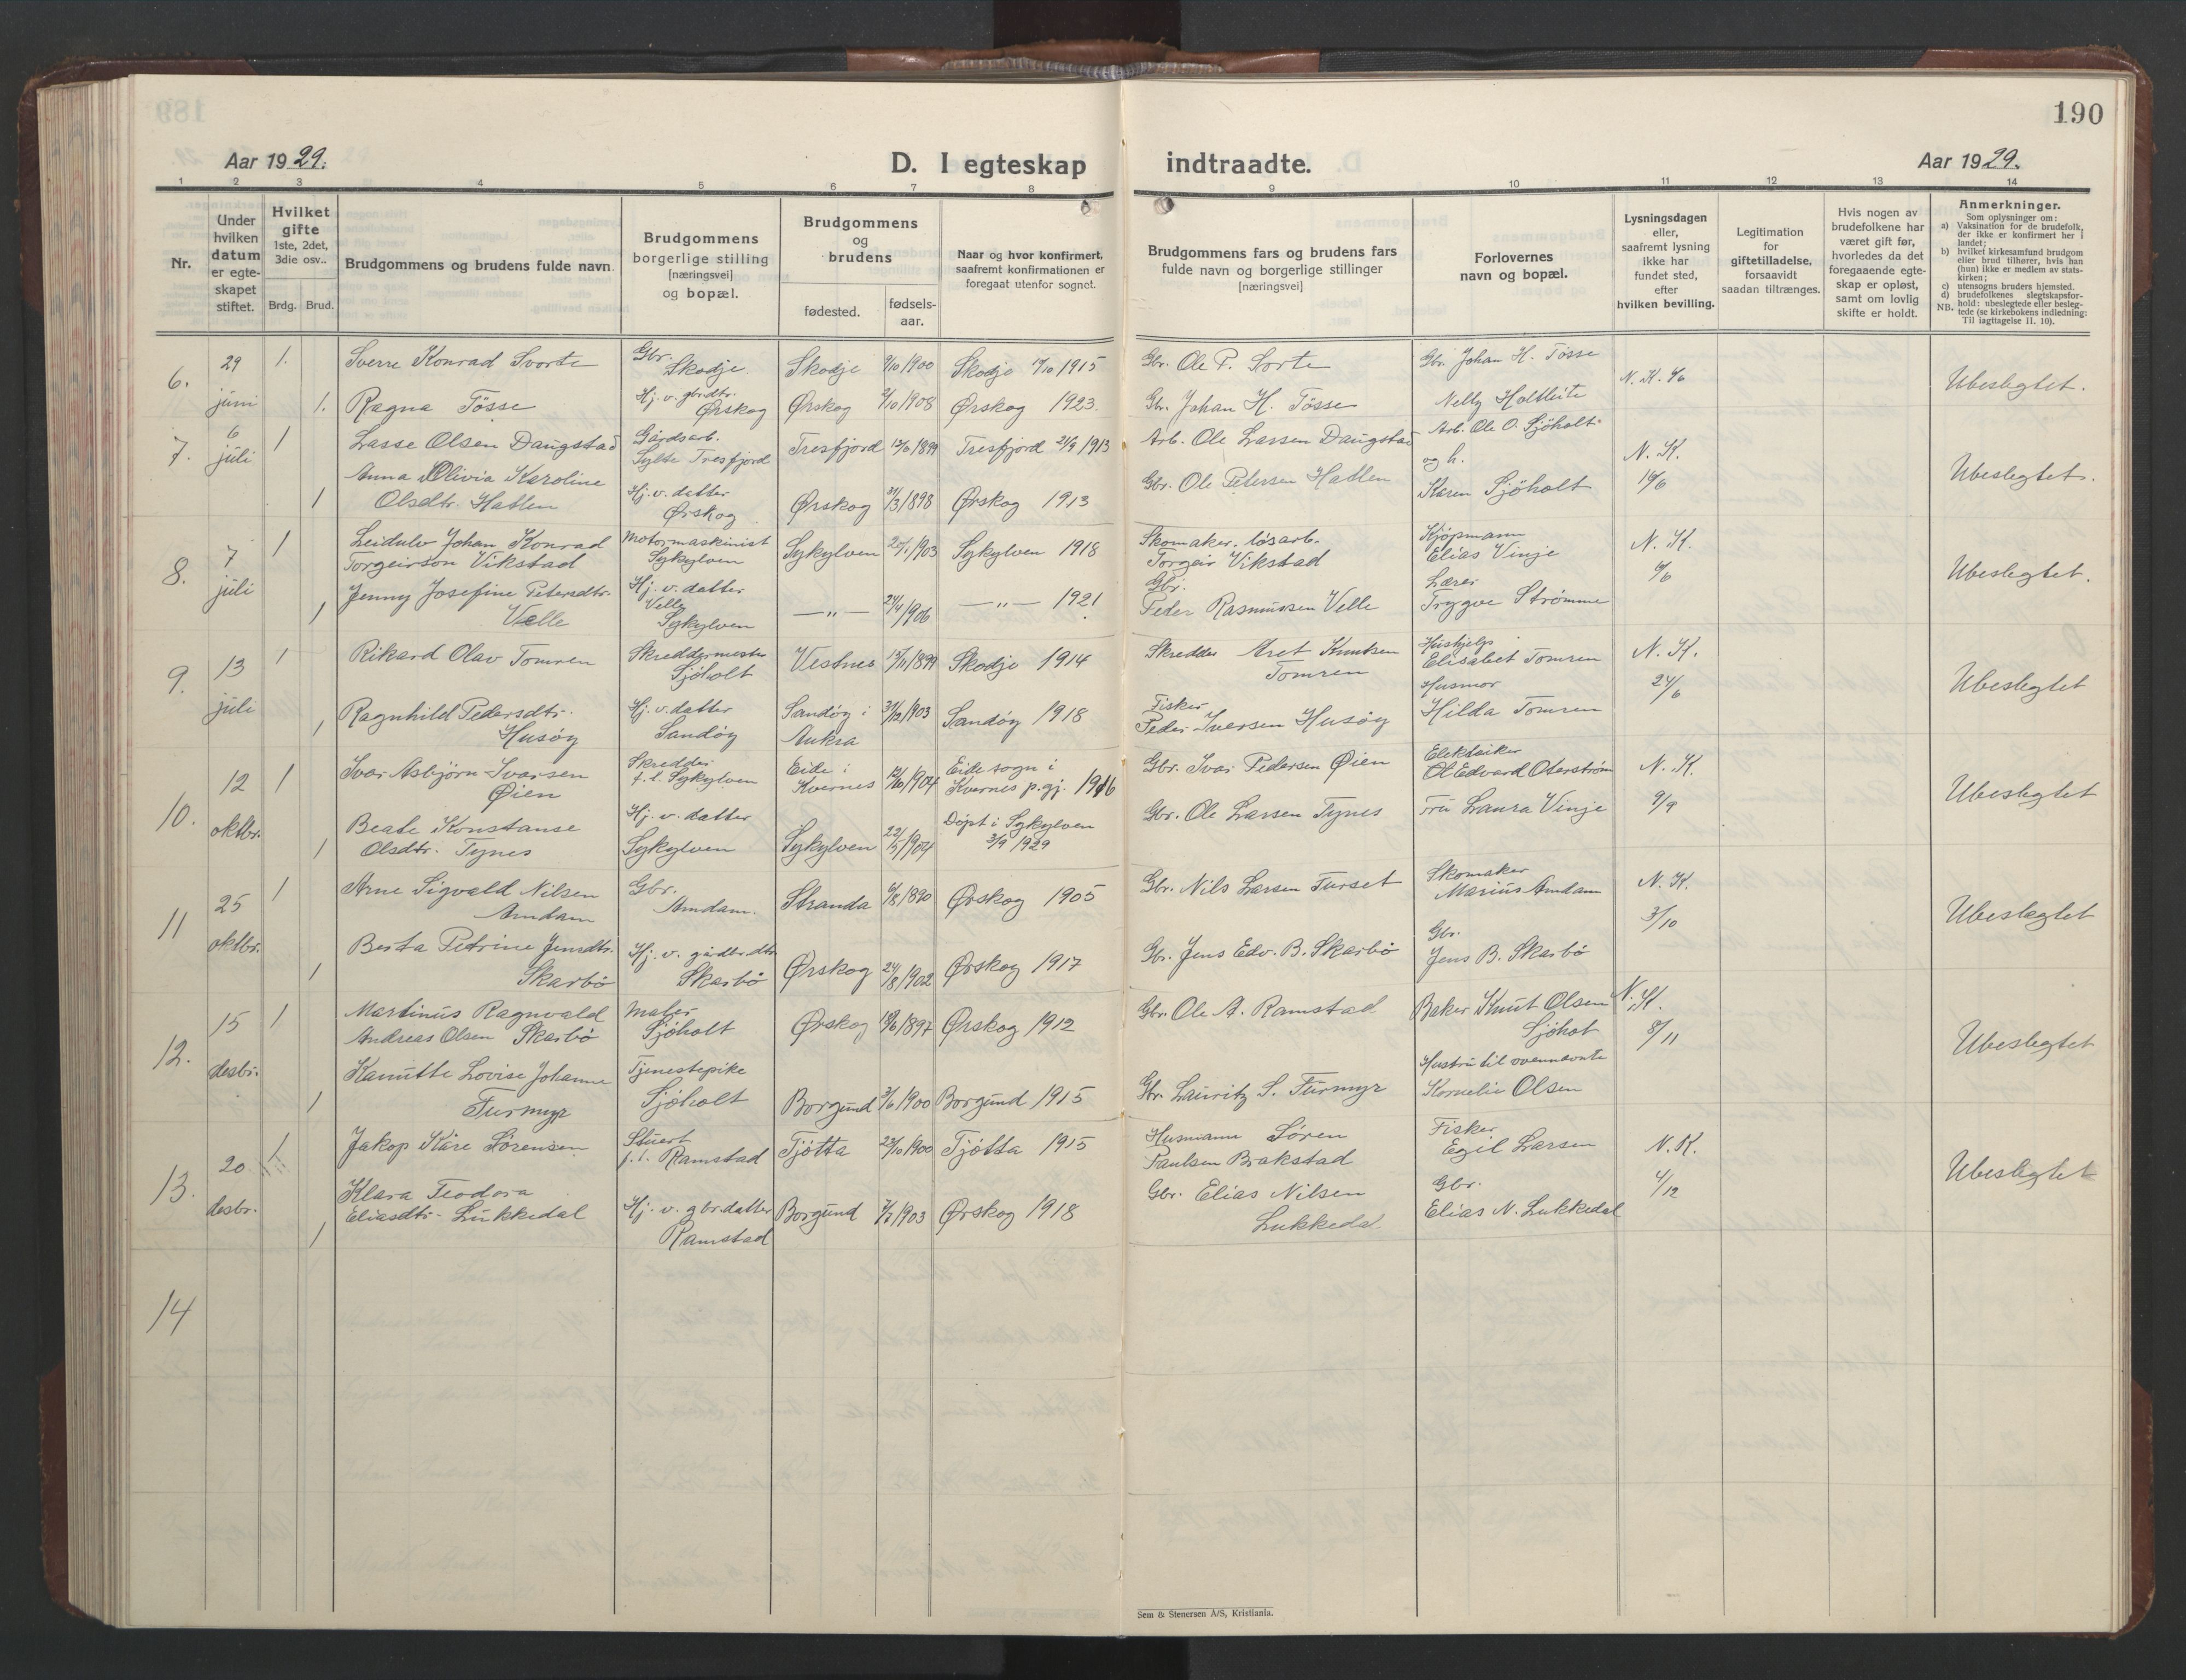 190
Aar 1929.
D. I egteskap indtraadte.
Aar 1929.
1 2 3 4 5 6 7 8 9 10 11 12 13 14
Nr.
Under hvilken datum er egteskapet stiftet.
Hvilket gifte
1ste, 2det, 3die osv..
Brdg. Brud.
Brudgommens og brudens fulde navn
Brudgommens borgerlige stilling [næringsvei] og bopæl.
Brudgommens og brudens
fødested.
fødsels-aar.
Naar og hvor konfirmert, saafremt konfirmationen er foregaat utenfor sognet.
Brudgommens fars og brudens fars fulde navn og borgerlige stillinger [næringsvei]
Forlovernes navn og bopæl.
Lysningsdagen eller, saafremt lysning ikke har fundet sted, efter hvilken bevilling.
Legitimation for giftetilladelse, forsaavidt saadan tiltrænges.
Hvis nogen av brudefolkene har været gift før, hvorledes da det foregaaende egteskap er opløst, samt om lovlig skifte er holdt.
Anmerkninger.
Som oplysninger om:
a) Vaksination for de brudefolk, der ikke er konfirmert her i landet;
b) hvilket kirkesamfund brudgom eller brud tilhører, hvis han (hun) ikke er medlem av statskirken;
c) utensogns bruders hjemsted.
d) brudefolkenes slegtskapsforhold: ubeslegtede eller beslegtede (se kirkebokens indledning:
NB. Til iagttagelse II. 10).
6. 29 juni 1. Sverre Konrad Svorte Gbr. Skodje Skodje 9/10 1900 Skodje 17/10 1915 Gbr. Ole P. Sorte Gbr. Johan H. Tøsse N. K. Ubeslegtet.
1. Ragna Tøsse Hj. v. gbrdtr. Ørskog Ørskog 2/10 1908 Ørskog 1923. Gbr. Johan H. Tøsse Nelly Holtleite
7. 6 juli 1 Lasse Olsen Daugstad Gårdsarb. Sylte Tresfjord Tresfjord 1899 Tresfjord 21/9 1913 Arb. Ole Larsen Daugstad Arb. Ole O. Sjøholt og h. N. K. Ubeslegtet.
1 Anna Olivia Karoline Olsdtr. Hatlen Hj. v. datter Ørskog Ørskog 31/3 1898 Ørskog 1913 Gbr. Ole Petersen Hatlen Karen Sjøholt
8. 7 juli 1 Leidulv Johan Konrad Torgeirson Vikstad Motormaskinist Sykylven Sykylven 1903 Sykylven 1918 Skomaker, løsarb. Torgeir Vikstad Kjøpmann Elias Vinje N. K. Ubeslegtet.
1 Jenny Josefine Petersdtr. Velle Hj. v. datter Velle Sykylven — „ — 24/4 1906 — „ — 1921 Gbr. Peder Rasmussen Velle Lærer Trygve Strømme
9. 13 juli 1 Rikard Olav Tomren Skreddermester Sjøholt Vestnes 1899 Skodje 1914 Skredder Aret Knutsen Tomren Hushjelp Elisabet Tomren N. K. 24/6 Ubeslegtet
1 Ragnhild Pedersdtr. Husøy Hj. v. datter Sandøy Sandøy i Aukra 31/12 1903 Sandøy 1918 Fisker Peder Iversen Husøy Husmor Hilda Tomren
10. 12 oktbr. 1 Ivar Asbjørn Ivarsen Øien Skredder f. t. Sykylven Eide i Kvernes 1904 Eide sogn i Kvernes p.gj. 1916 Gbr. Ivar Pedersen Øien Elektriker Ol Edvard Oterstrøm N. K. 9/9 Ubeslegtet
1 Beate Konstanse Olsdtr. Tynes Hj. v. datter Sykylven Sykylven 1904 Døpt i Sykylven 3/9 1929 Gbr. Ole Larsen Tynes Fru Laura Vinje
11 25 oktbr. 1 Arne Sigvald Nilsen Amdam Gbr. Amdam. Stranda 6/8 1890 Ørskog 1905 Gbr. Nils Larsen Furset Skomaker Marius Amdam N. K. 3/10 Ubeslegtet
1 Berta Petrine Jensdtr. Skarbø Hj. v. gårdbr.dtr Skarbø Ørskog 24/8 1902 Ørskog 1917 Gbr. Jens Edv. B. Skarbø Gbr. Jens B. Skarbø
12. 15 desbr. 1 Martinus Ragnvald Andreas Olsen Skarbø Maler Sjøholt Ørskog 1897 Ørskog 1912 Gbr. Ole A. Ramstad Baker Knut Olsen Sjøholt N. K. 8/11 Ubeslegtet
1 Kanutte Lovise Johanne Furmyr Tjenestepike Sjøholt Borgund 3/6 1900 Borgund 1915 Gbr. Lauritz S. Furmyr Hustru til ovennevnte Kornelie Olsen
13. 20 desbr. 1 Jakop Kåre Sørensen Stuert f. t. Ramstad Tjøtta 23/10 1900 Tjøtta 1915 Husmann Søren Paulsen Brakstad Fisker Egil Larsen N. K. 4/12 Ubeslegtet
1 Klara Teodora Eliasdtr. Lukkedal Hj. v. gbr.datter Ramstad Borgund 1903 Ørskog 1918 Gbr. Elias Nilsen Lukkedal. Gbr. Elias N. Lukkedal
14
Sem & Stenersen A/S, Kristiania.